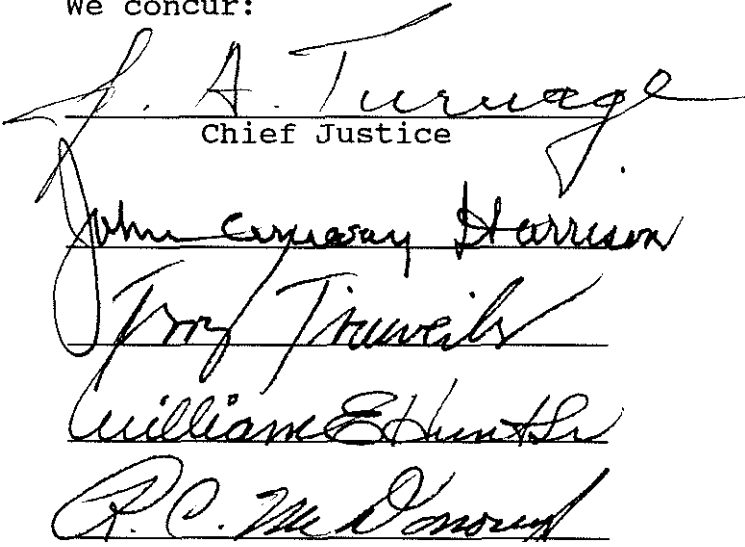 We concur:
J. A. Turnage
Chief Justice
John Conway Harrison
Terry Trieweiler
William E Hunt Sr
R. C. McDonough